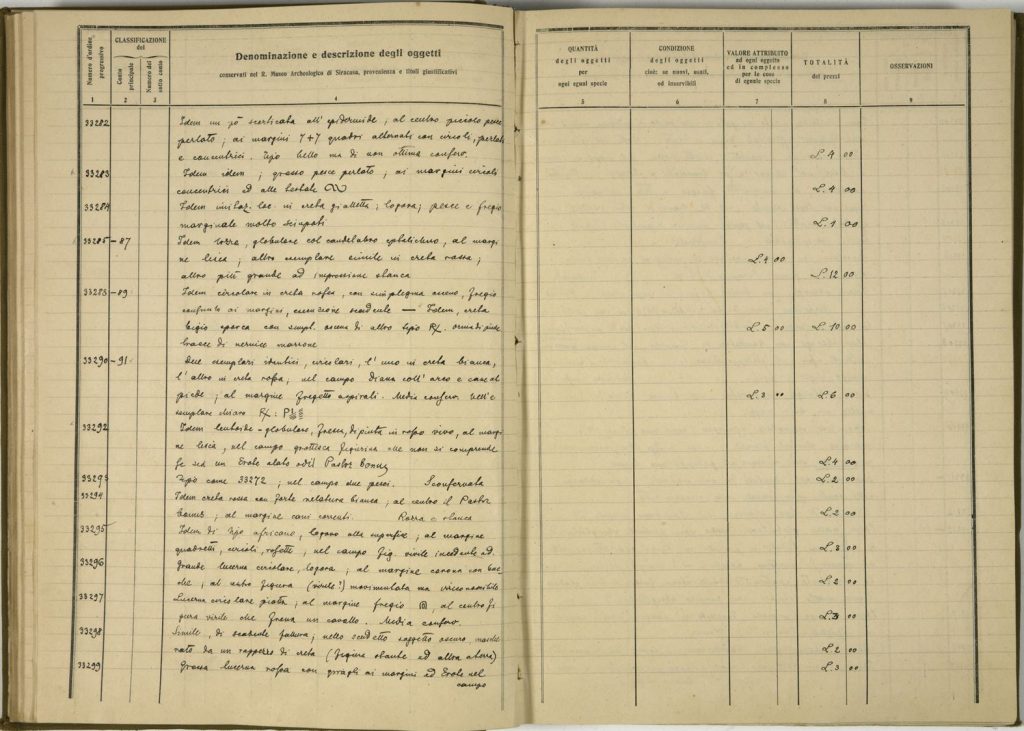 Numero d'ordine progressivo
CLASSIFICAZIONE
del
Conto principale
Numero del sotto conto
Denominazione e descrizione degli oggetti
conservati nel R. Museo Archeologico di Siracusa, provenienza e titoli giustificativi
1 2 3 4
QUANTITÀ
degli oggetti
per
ogni egual specie
CONDIZIONE
degli oggetti
cioè: se nuovi, usati,
od inservibili
VALORE ATTRIBUITO
ad ogni oggetto
ed in complesso
per le cose
di eguale specie
TOTALITÀ
dei prezzi
OSSERVAZIONI
5 6 7 8 9
33282 Idem un pò scorticata all' epidermide; al centro piccolo pesce
perlato; ai margini 7+7 quadri alternati con circoli, perlati
e concentrici. Tipo bello ma di non ottima conserv. L. 4 00
33283 Idem idem; grosso pesce perlato; ai margini circoli
concentrici ed alle testate L. 4 00
33284 Idem in creta gialletta; logora; pesce e fregio
marginale molto sciupati L. 1 00
33285 - 87 Idem rozza, globulare col candelabro al margi
ne lisca; altro esemplare simile in creta rossa; L. 4 00
altro più grande ad impressione stanca L. 12 00
33288 - 89 Idem circolare in creta rossa, con simplegma osceno, fregio
ai margini, esecuzione scadente — Idem, creta
bigio sporca con simpl. oscena di altro tipo L. 5 00 L. 10 00
tracce di vernice marrone
33290 - 91 Due esemplari identici, circolari, l' uno in creta bianca,
l' altro in creta rossa; nel campo Diana coll' arco e cane al
piede; al margine fregetto aspirali. Media conserv. Nell'e L. 3 00 L. 6 00
semplare chiaro
33292 Idem lentoide - globulare, dipinta in rosso vivo, al margi
ne lisca, nel campo grottesca figurina che non si comprende
se sia un Erote alato od il Pastor bonus L. 4 00
33293 Tipo come 33272; nel campo due pesci. Sconservata L. 2 00
33294 Idem creta rossa con forte velatura bianca; al centro il Pastor
bonus; al margine cani correnti. Rozza e stanca L. 2 00
33295 Idem di tipo africano, logoro alla superfice; al margine
quadretti, circoli, rosette, nel campo fig. virile incedente a d. L. 3 00
33296 Grande lucerna circolare, logora; al margine corona con bac
che; al centro figura (virile?) movimentata ma irriconoscibile L. 2 00
33297 Lucerna circolare piatta; al margine fregio al centro fi
gura virile che frena un cavallo. Media conserv. L. 3 00
33298 Simile, di scadente fattura; nello scodetto soggetto oscuro, masche
rato da un rappezzo di creta (figura stante ed altra a terra) L. 2 00
33299 Grossa lucerna rossa con ai margini ed Erote nel L. 3 00
campo